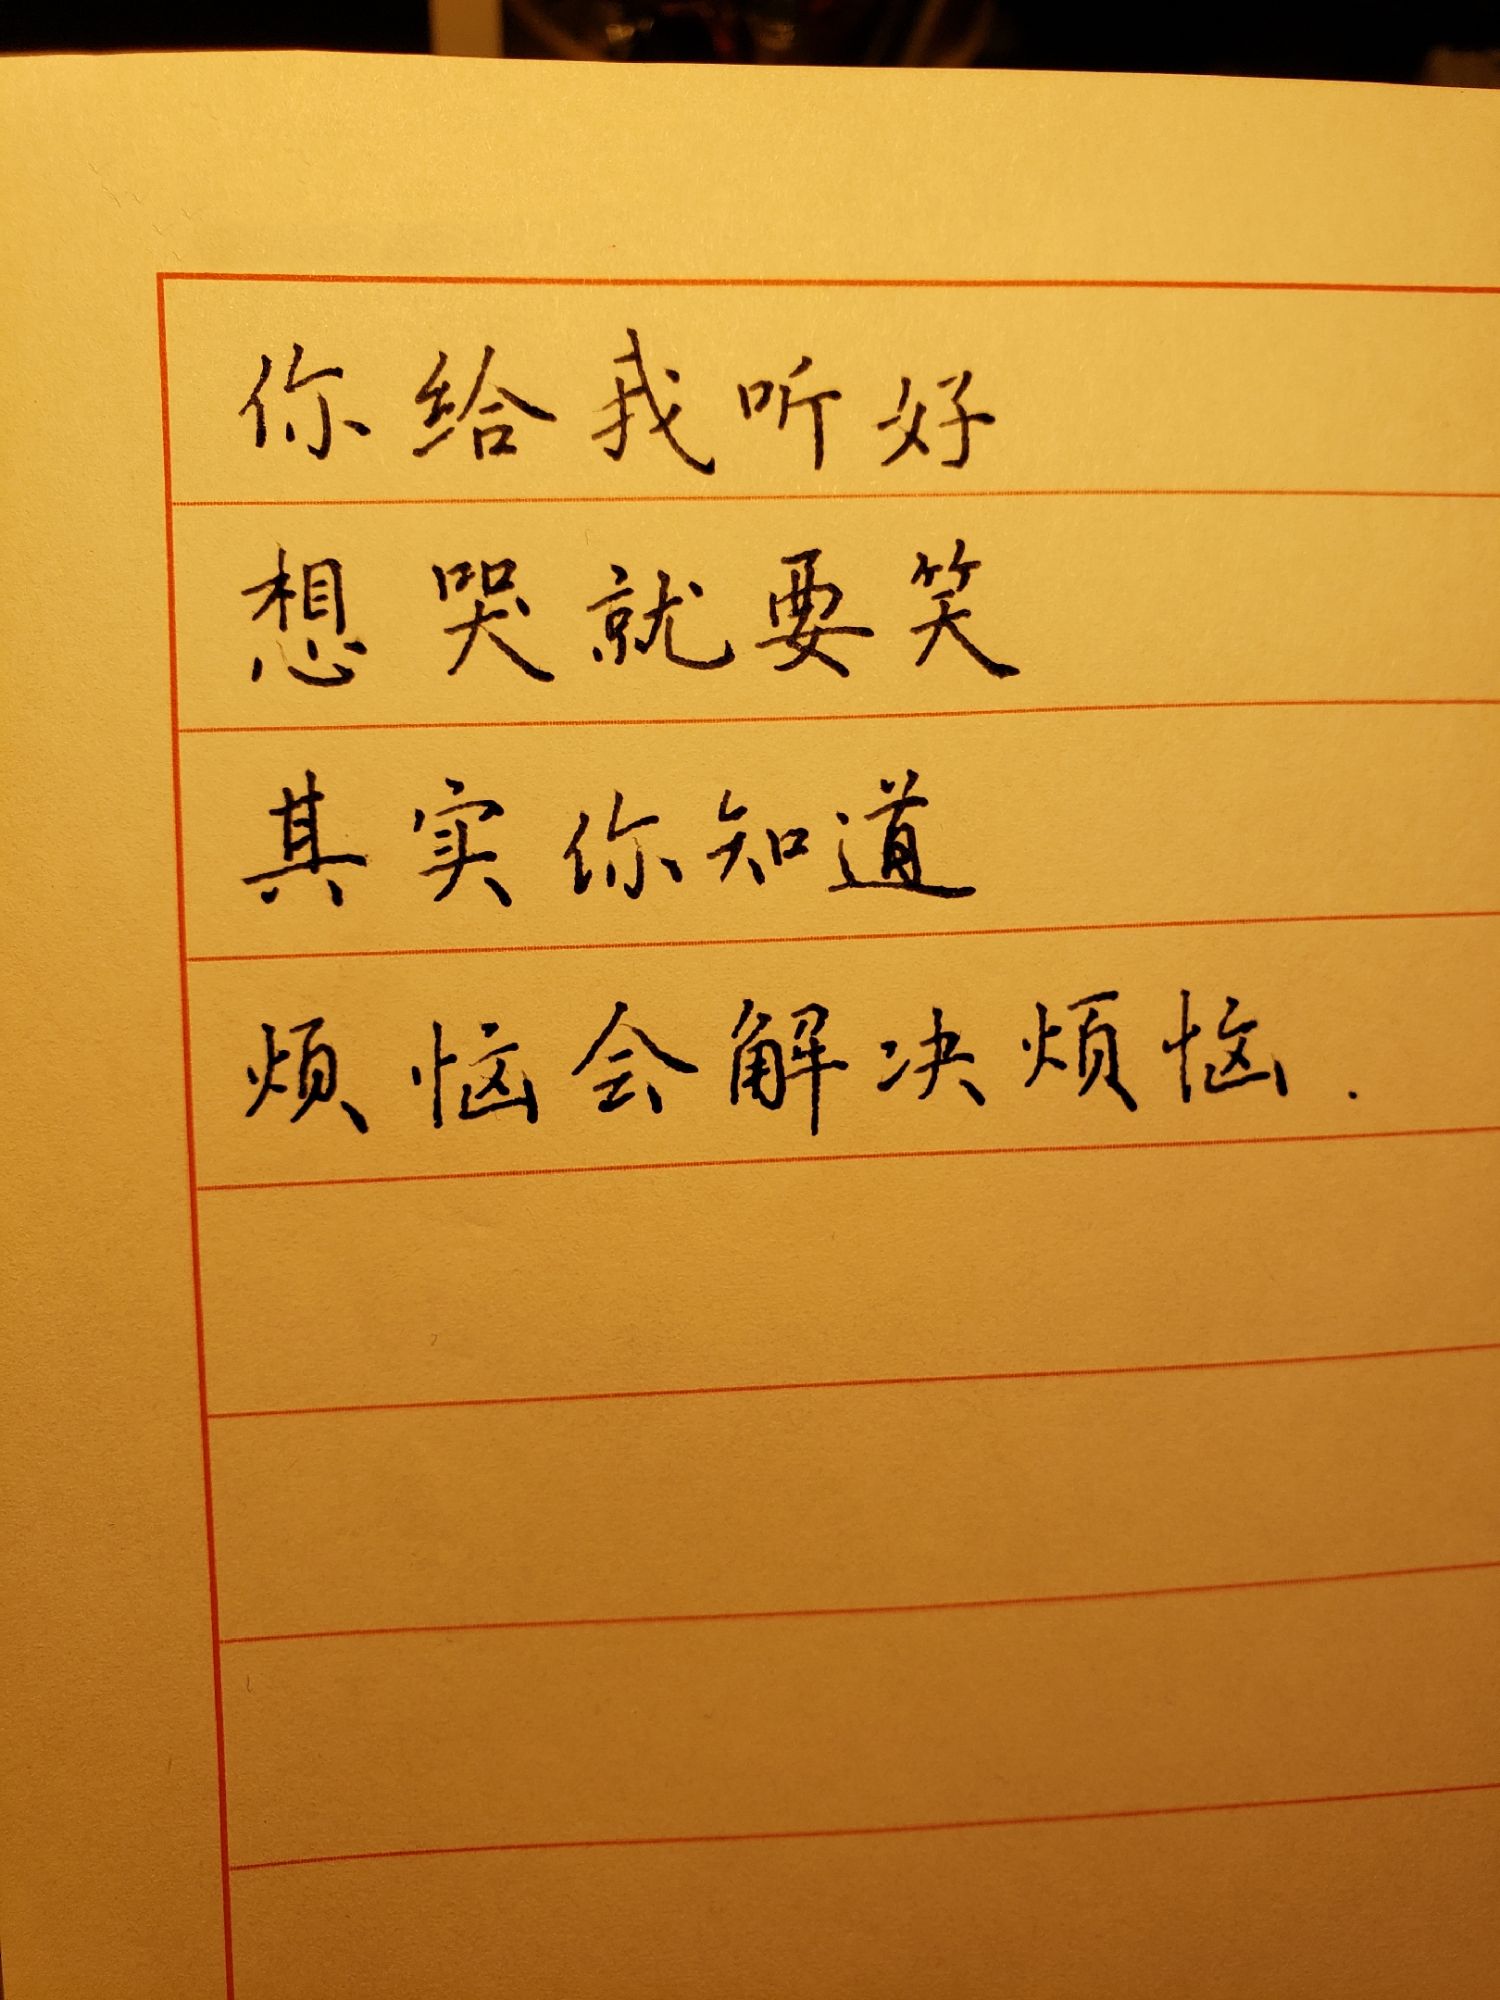 你给我听好
想哭就要笑
其实你知道
烦恼会解决烦恼.